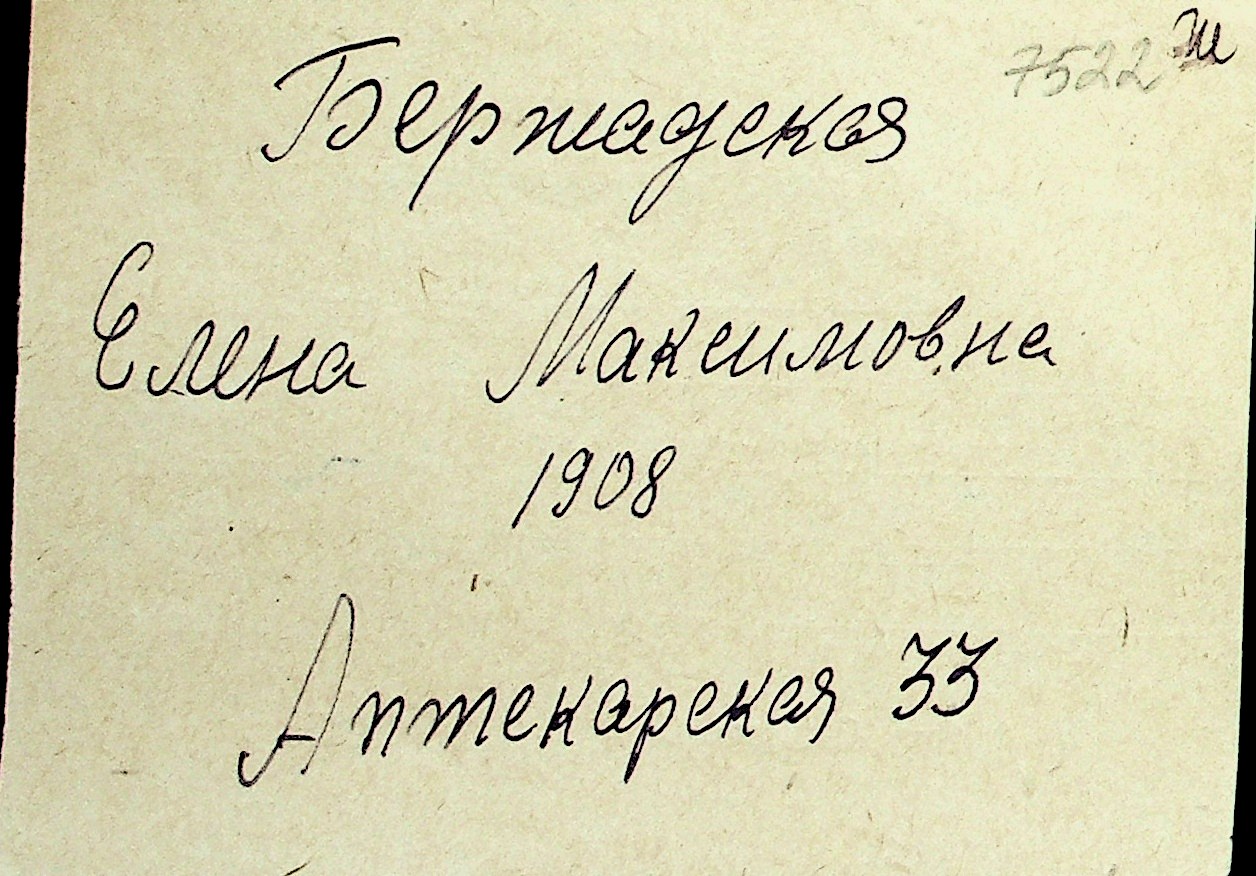 7522
Бержадская
Елена Максимовна
1908
Аптекарская 33